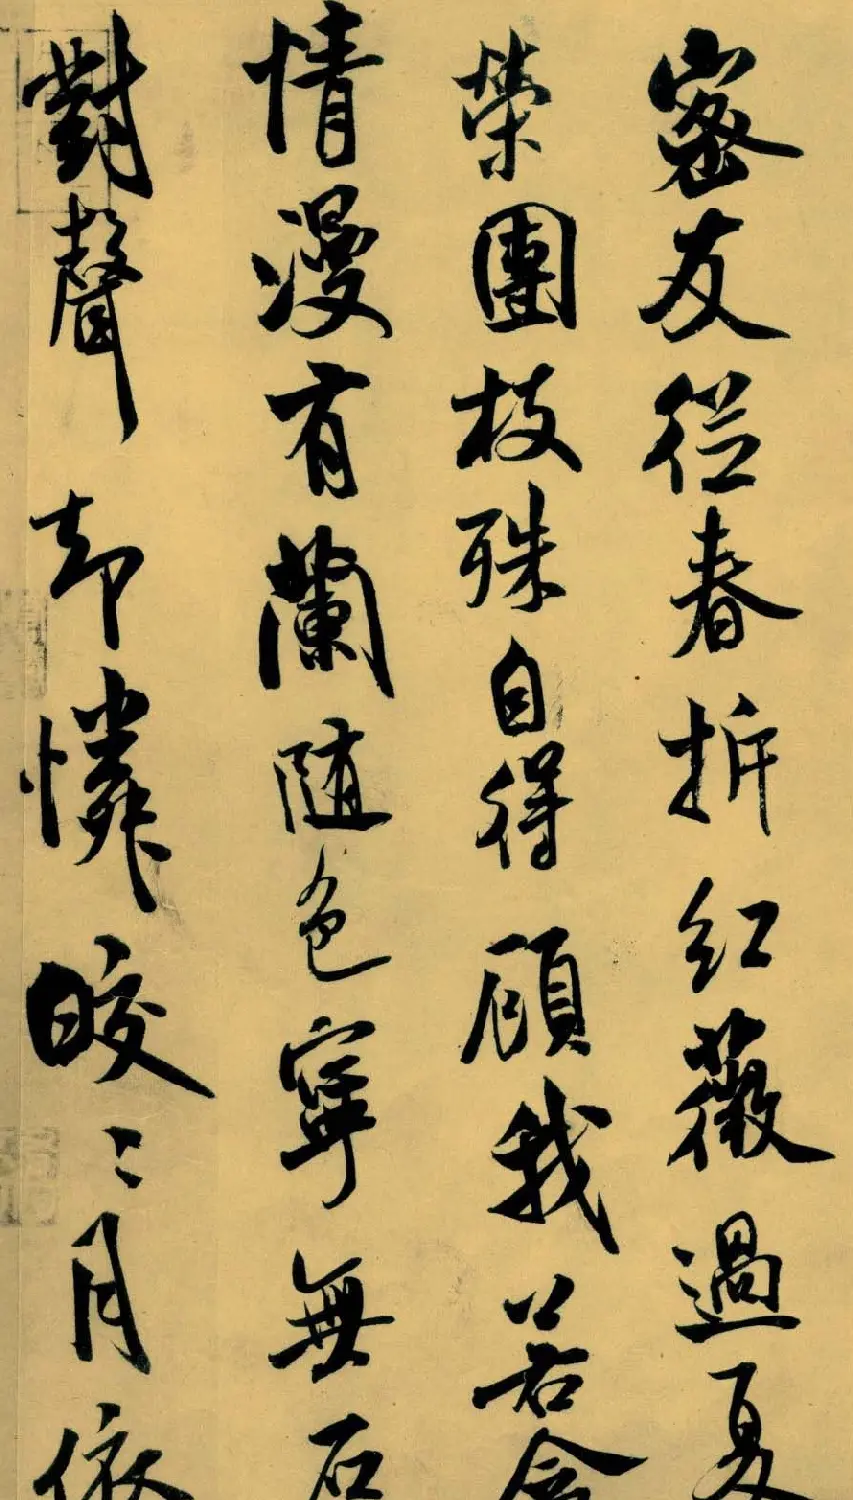 密友从春拆紅薇過夏
榮團枝殊自得顧我若含
情漫有蘭隨色寧無石
對聲却憐皎〻月依